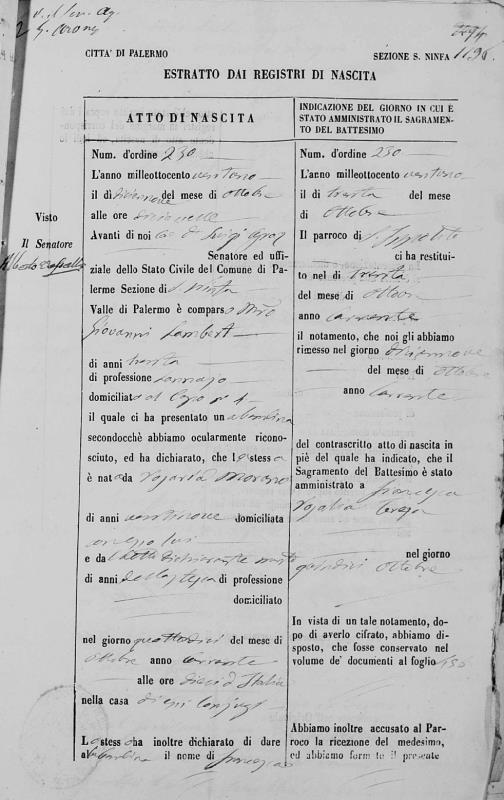 CITTA' DI PALERMO
SEZIONE S. NINFA
1196
ESTRATTO DAI REGISTRI DI NASCITA
Visto
Il Senatore
ATTO DI NASCITA
Num. d'ordine 230
L'anno milleottocento ventuno
il dì diciannove del mese di ottobre
alle ore diciannove
Avanti di noi Luigi
Senatore ed uffi-
ziale dello Stato Civile del Comune di Pa-
lerme Sezione di S. Ninfa
Valle di Palermo è comparso Mro
Giovanni Lambert
di anni trenta
di professione
domiciliato al Capo n 1
il quale ci ha presentato una bambina
secondocchè abbiamo ocularmente ricono-
sciuto, ed ha dichiarato, che la stessa
è nata da Rosaria Morano
di anni ventinove domiciliata
con esso lui
e dal detto dichiarante marito
di anni della stessa di professione
domiciliato
nel giorno quattordici del mese di
ottobre anno corrente
alle ore dieci d'Italia
nella casa di essi conjugi
La stessa ha inoltre dichiarato di dare
alla bambina il nome di Francesca
INDICAZIONE DEL GIORNO IN CUI È
STATO AMMINISTRATO IL SAGRAMEN-
TO DEL BATTESIMO
Num. d'ordine 230
L'anno milleottocento ventuno
il di trenta del mese
di ottobre
Il parroco di S. Ippolito
ci ha restitui-
to nel di trenta
del mese di ottobre
anno corrente
il notamento, che noi gli abbiamo
rimesso nel giorno diciannove
del mese di ottobre
anno corrente
del contrascritto atto, di nascita in
piè del quale ha indicato, che il
Sagramento del Battesimo è stato
amministrato a Francesca
Rosalia Teresa
nel giorno
quindici ottobre
In vista di un tale notamento, do-
po di averlo cifrato, abbiamo di-
sposto, che fosse conservato nel
volume de' documenti al foglio
Abbiamo inoltre accusato al Par-
roco la ricezione del medesimo,
ed abbiamo formato il presente